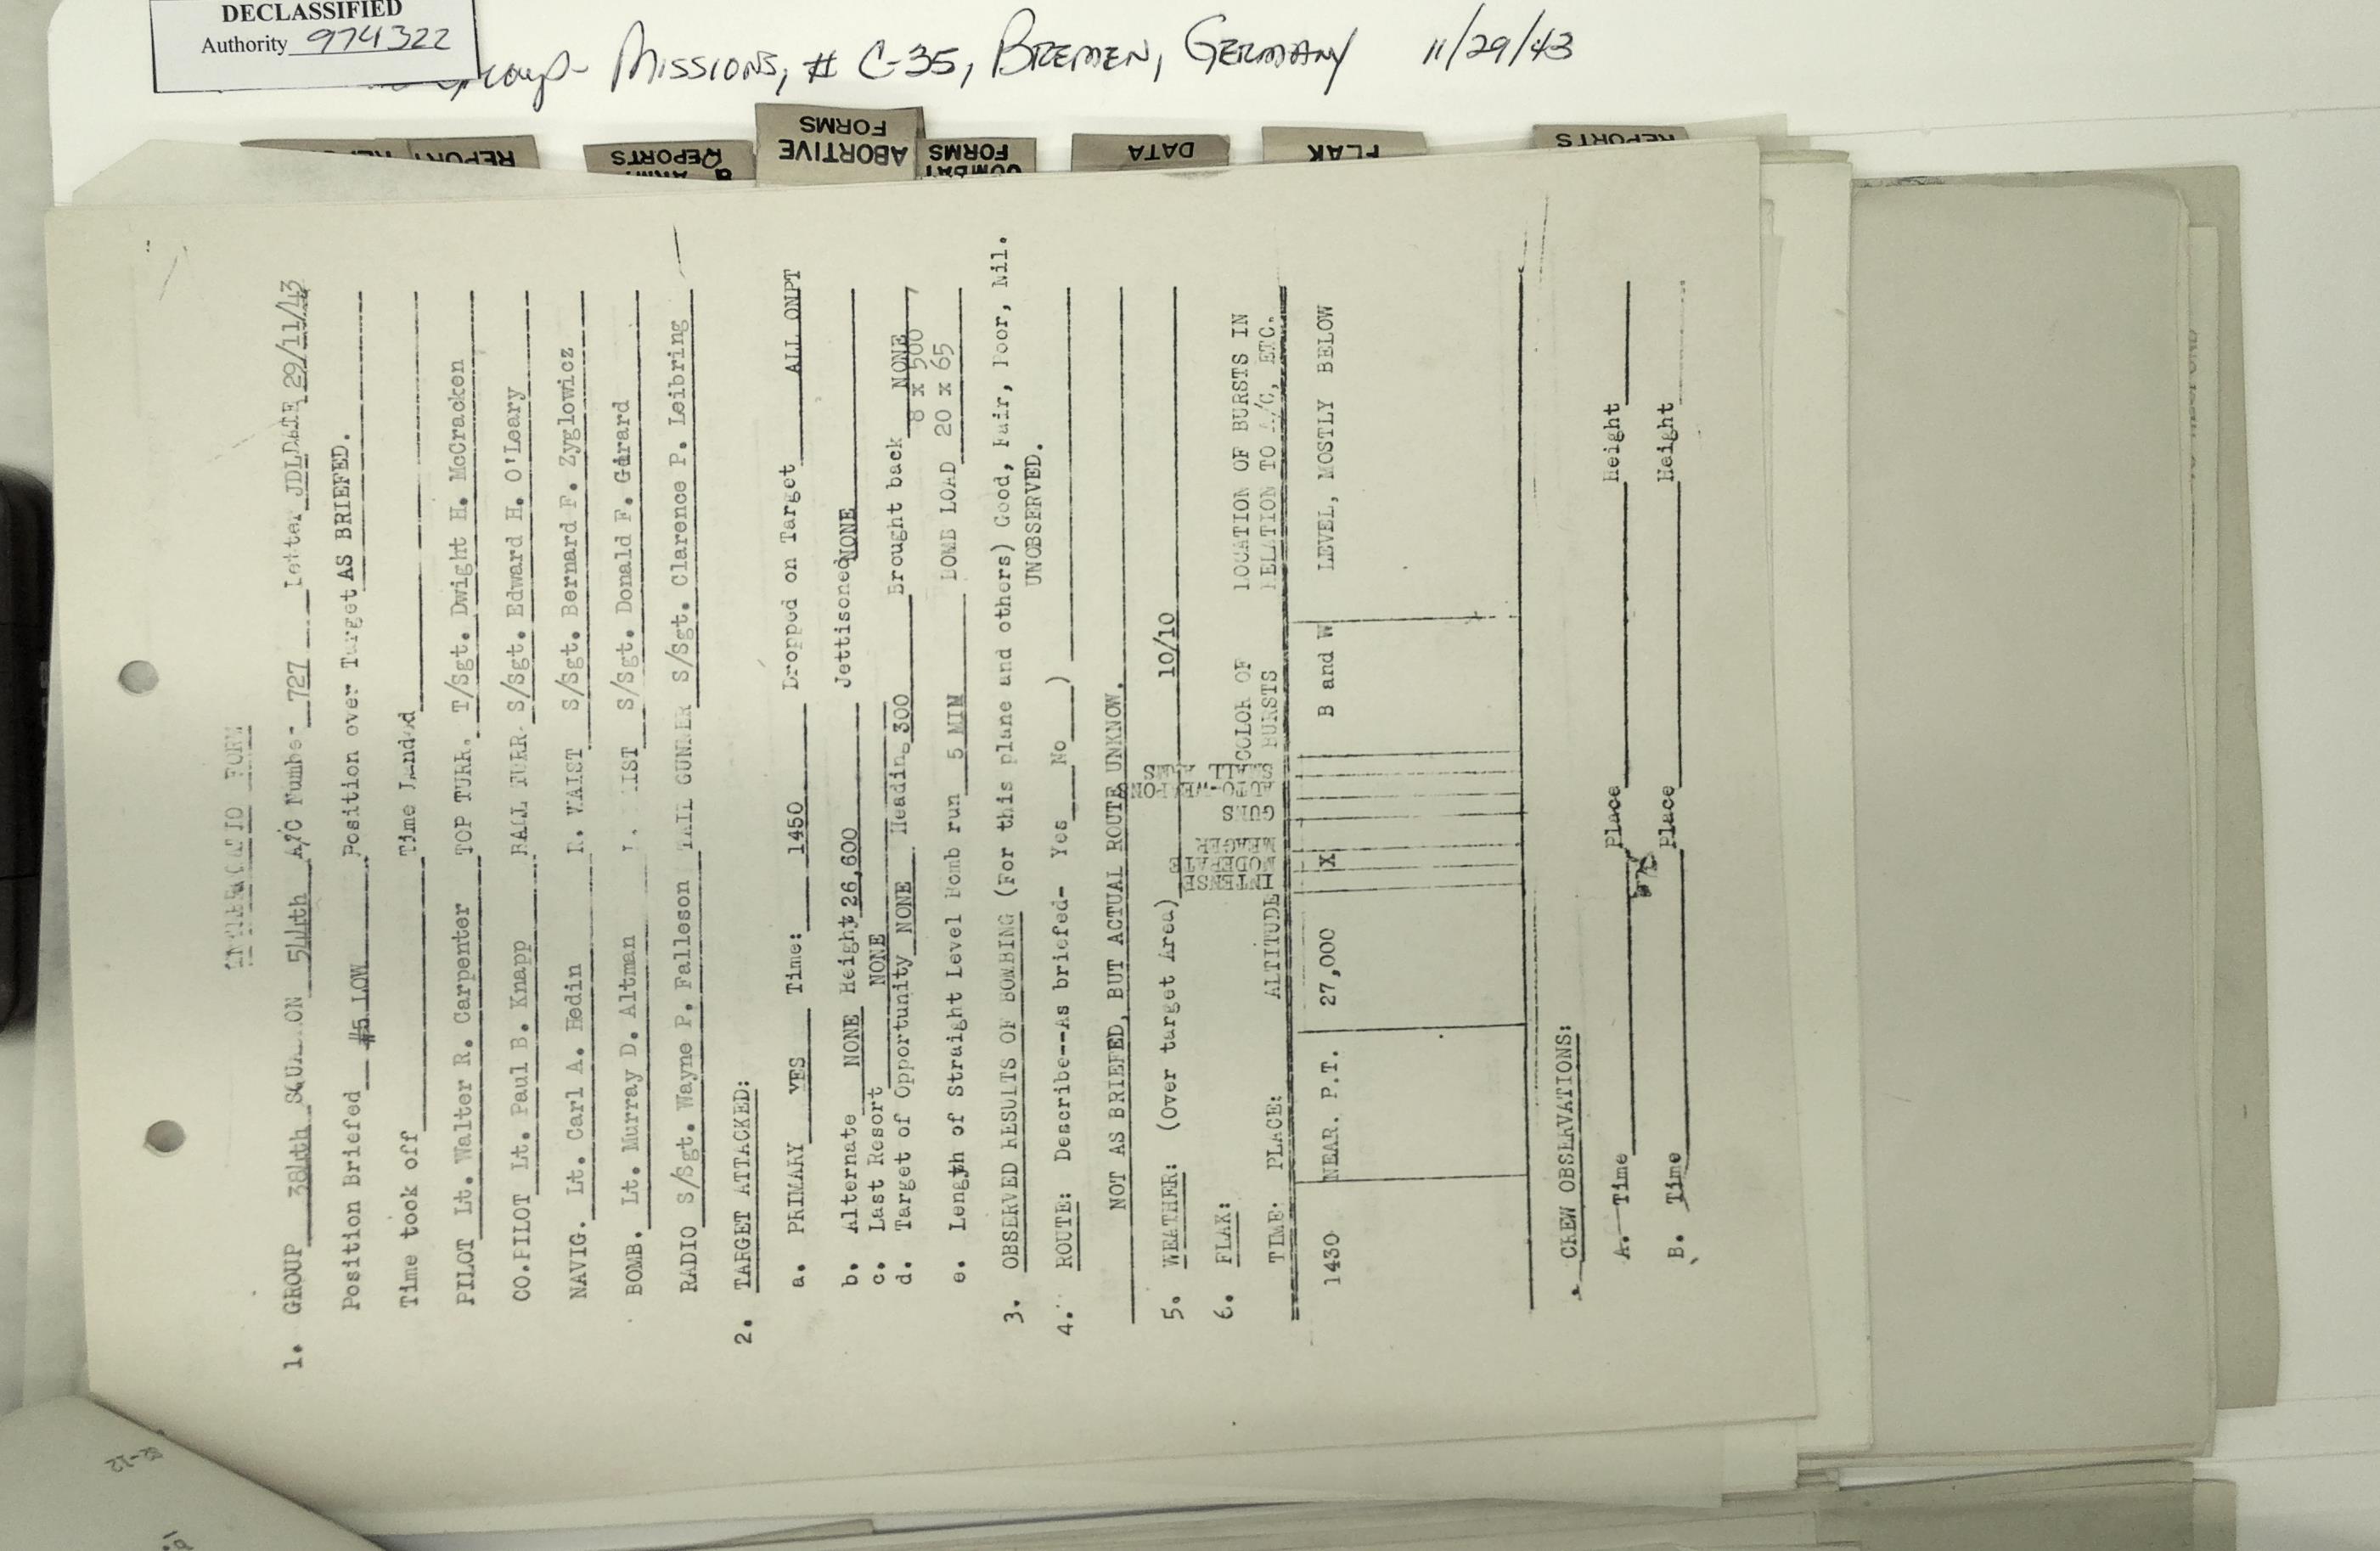 DECLASSIFIED
Authority 974322
Group- Missions, # C-35, BREMEN, GERMANY 11/29/43
REPORT
REPORTS
ABORTIVE
FORMS
COMBAT
FORMS
DATA
FLAK
REPORTS
FORM
1. GROUP 384th SQUADRON 544th A/C Number 727 Letter JDL DATE 29/11/43
Position Briefed #5 LOW Position over Target AS BRIEFED.
Time took off Time Landed
PILOT Lt. Walter R. Carpenter TOP TURR. T/Sgt. Dwight H. McCracken
CO.PILOT Lt. Paul B. Knapp BALL TURR. S/Sgt. Edward H. O'Leary
NAVIG. Lt. Carl A. Hedin R. WAIST S/Sgt. Bernard F. Zyglowicz
BOMB. Lt. Murray D. Altman S/Sgt. Donald F. Gerard
RADIO S/Sgt. Wayne P. Falleson TAIL GUNNER S/Sgt. Clarence P. Leibring
2. TARGET ATTACKED:
a. PRIMARY YES Time: 1450 Dropped on Target ALL ONPT
b. Alternate NONE Height 26,600 Jettisoned NONE
c. Last Resort NONE
d. Target of Opportunity NONE Heading 300 Brought back NONE
8 x 500
e. Length of Straight Level Bomb run 5 MIN BOMB LOAD 20 x 65
3. OBSERVED RESULTS OF BOMBING (For this plane and others) Good, Fair, Poor, Nil.
UNOBSERVED.
4. ROUTE: Describe--As briefed- Yes No )
NOT AS BRIEFED, BUT ACTUAL ROUTE UNKNOW.
5. WEATHER: (Over target Area) 10/10
6. FLAK:
TIME: PLACE: ALTITUDE INTENSE MODERATE MEAGER GUNS AUTO-WEAPON SMALL ARMS COLOR OF BURSTS LOCATION OF BURSTS IN RELATION TO A/C, ETC.
1430 NEAR. P.T. 27,000 X B and W LEVEL, MOSTLY BELOW
CREW OBSERVATIONS:
A. Time Place Height
B. Time Place Height